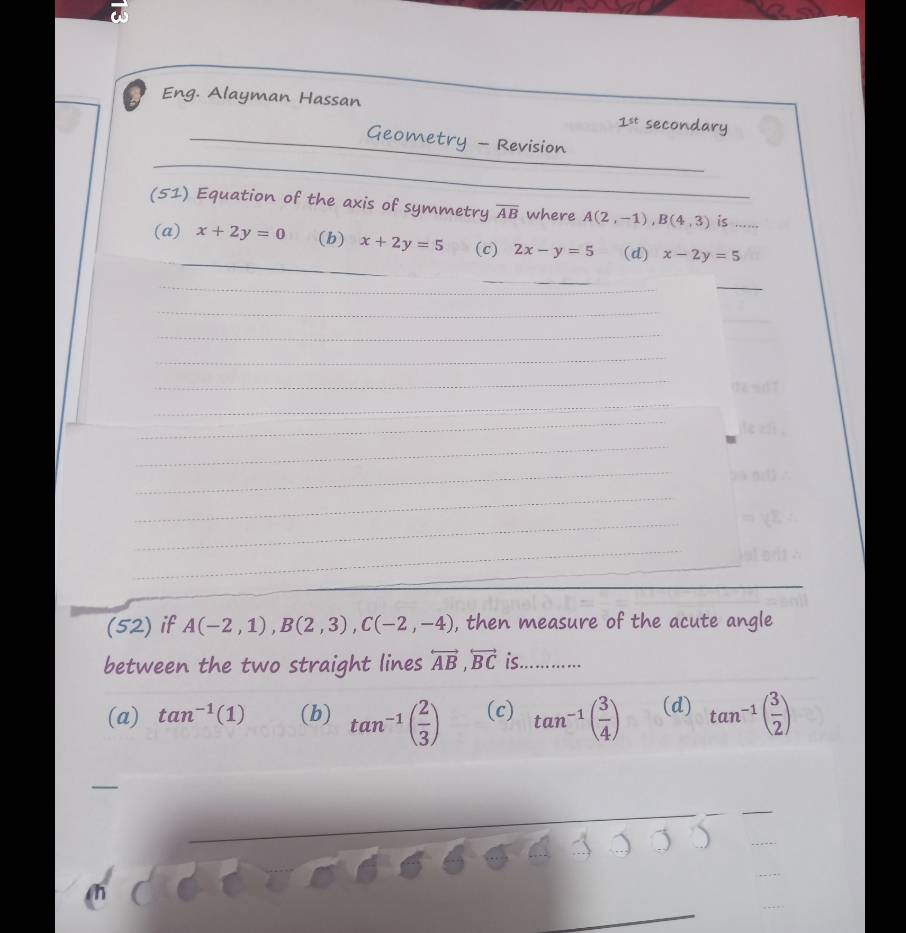 13
Eng. Alayman Hassan
1st secondary
Geometry - Revision
(51) Equation of the axis of symmetry \overline{AB} where A(2 ,−1) , B(4 ,3) is ......
(a) x + 2y = 0 (b) x + 2y = 5 (c) 2x − y = 5 (d) x − 2y = 5
(52) if A(−2 ,1) , B(2 ,3) , C(−2 ,−4), then measure of the acute angle
between the two straight lines \overleftrightarrow{AB} , \overleftrightarrow{BC} is............
(a) tan⁻¹(1) (b) tan⁻¹(2/3) (c) tan⁻¹(3/4) (d) tan⁻¹(3/2)